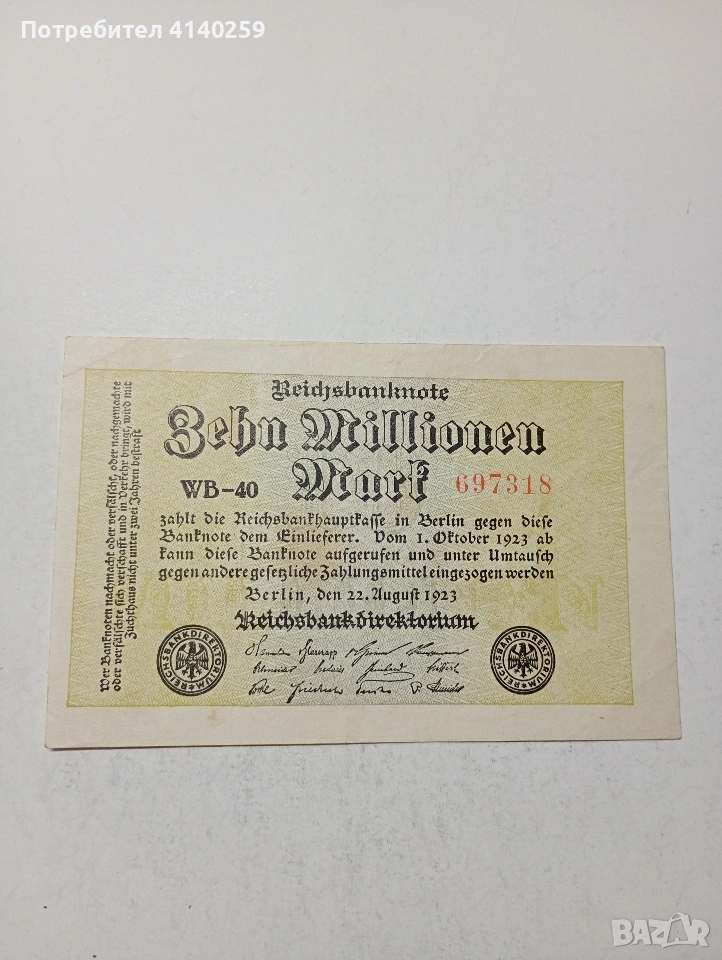 Потребител 4140259
Reichsbanknote
Zehn Millionen
Mark
WB-40
697318
zahlt die Reichsbankhauptkasse in Berlin gegen diese
Banknote dem Einlieferer. Vom 1. Oktober 1923 ab
kann diese Banknote aufgerufen und unter Umtausch
gegen andere gesetzliche Zahlungsmittel eingezogen werden
Berlin, den 22. August 1923
Reichsbankdirektorium
REICHSBANKDIREKTORIUM
REICHSBANKDIREKTORIUM
Wer Banknoten nachmacht oder verfälscht, oder nachgemachte
oder verfälschte sich verschafft und in Verkehr bringt, wird mit
Zuchthaus nicht unter zwei Jahren bestraft
BAZAR